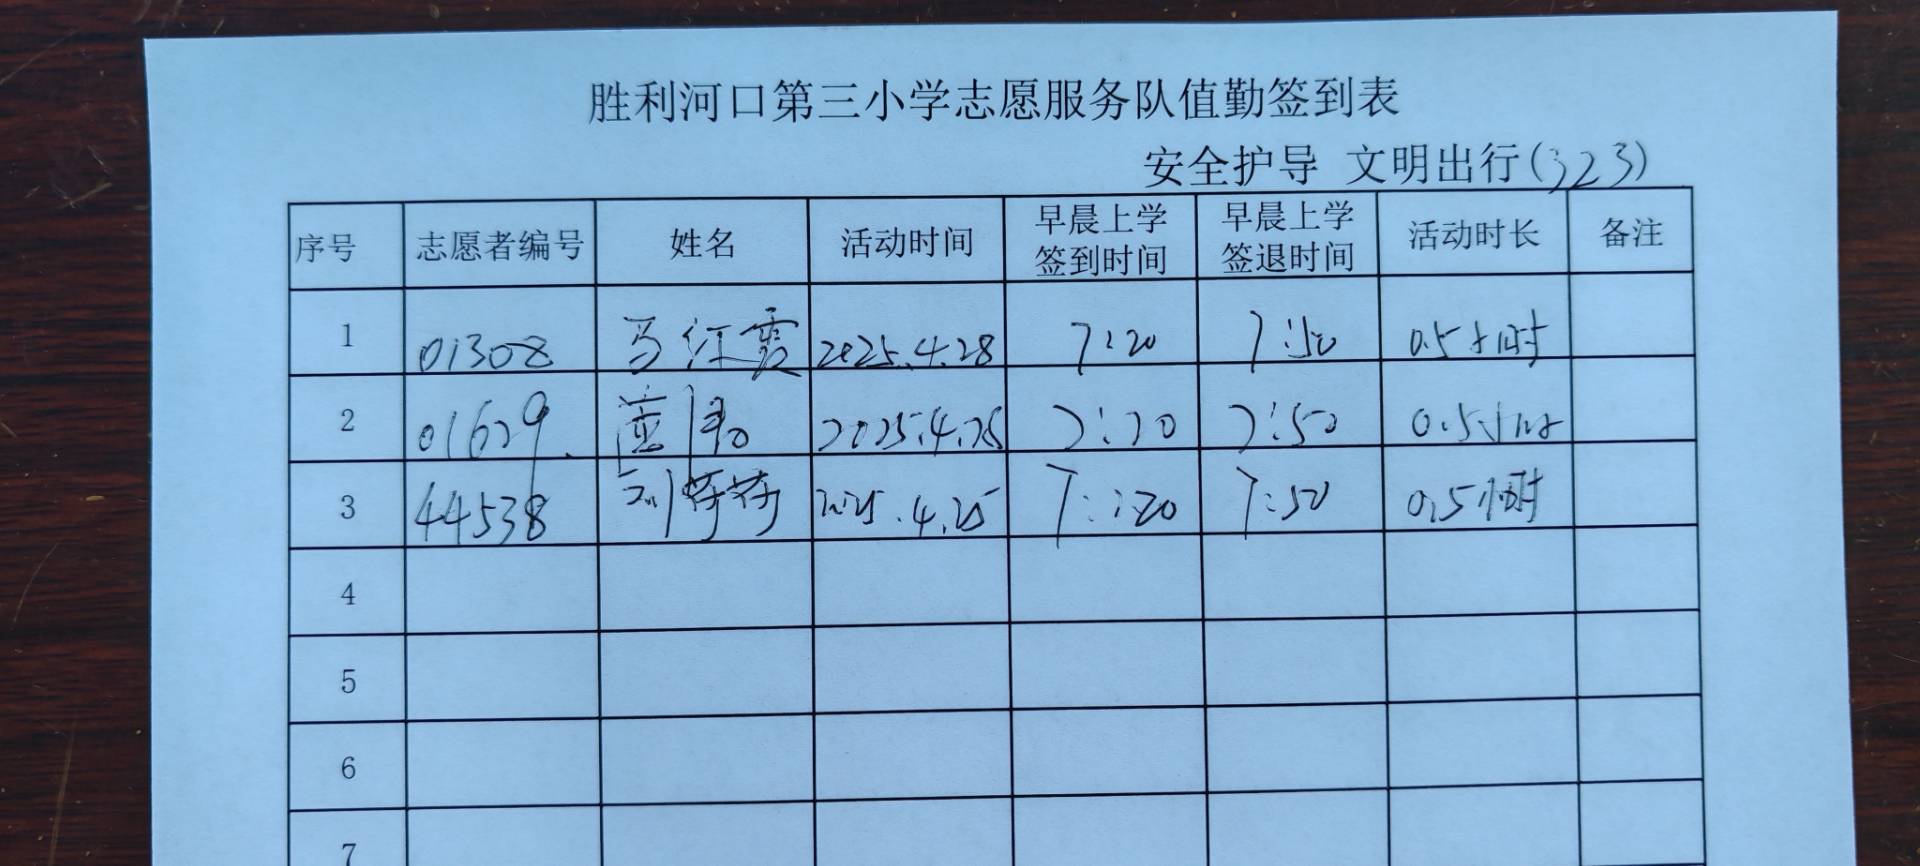 胜利河口第三小学志愿服务队值勤签到表
安全护导 文明出行(323)
序号 志愿者编号 姓名 活动时间 早晨上学签到时间 早晨上学签退时间 活动时长 备注
1 01308 马红霞 2025.4.28 7:20 7:50 0.5小时
2 01629. 2025.4.25 7:20 7:50 0.5小时
3 44538 刘荷荷 2025.4.25 7:20 7:50 0.5小时
4
5
6
7